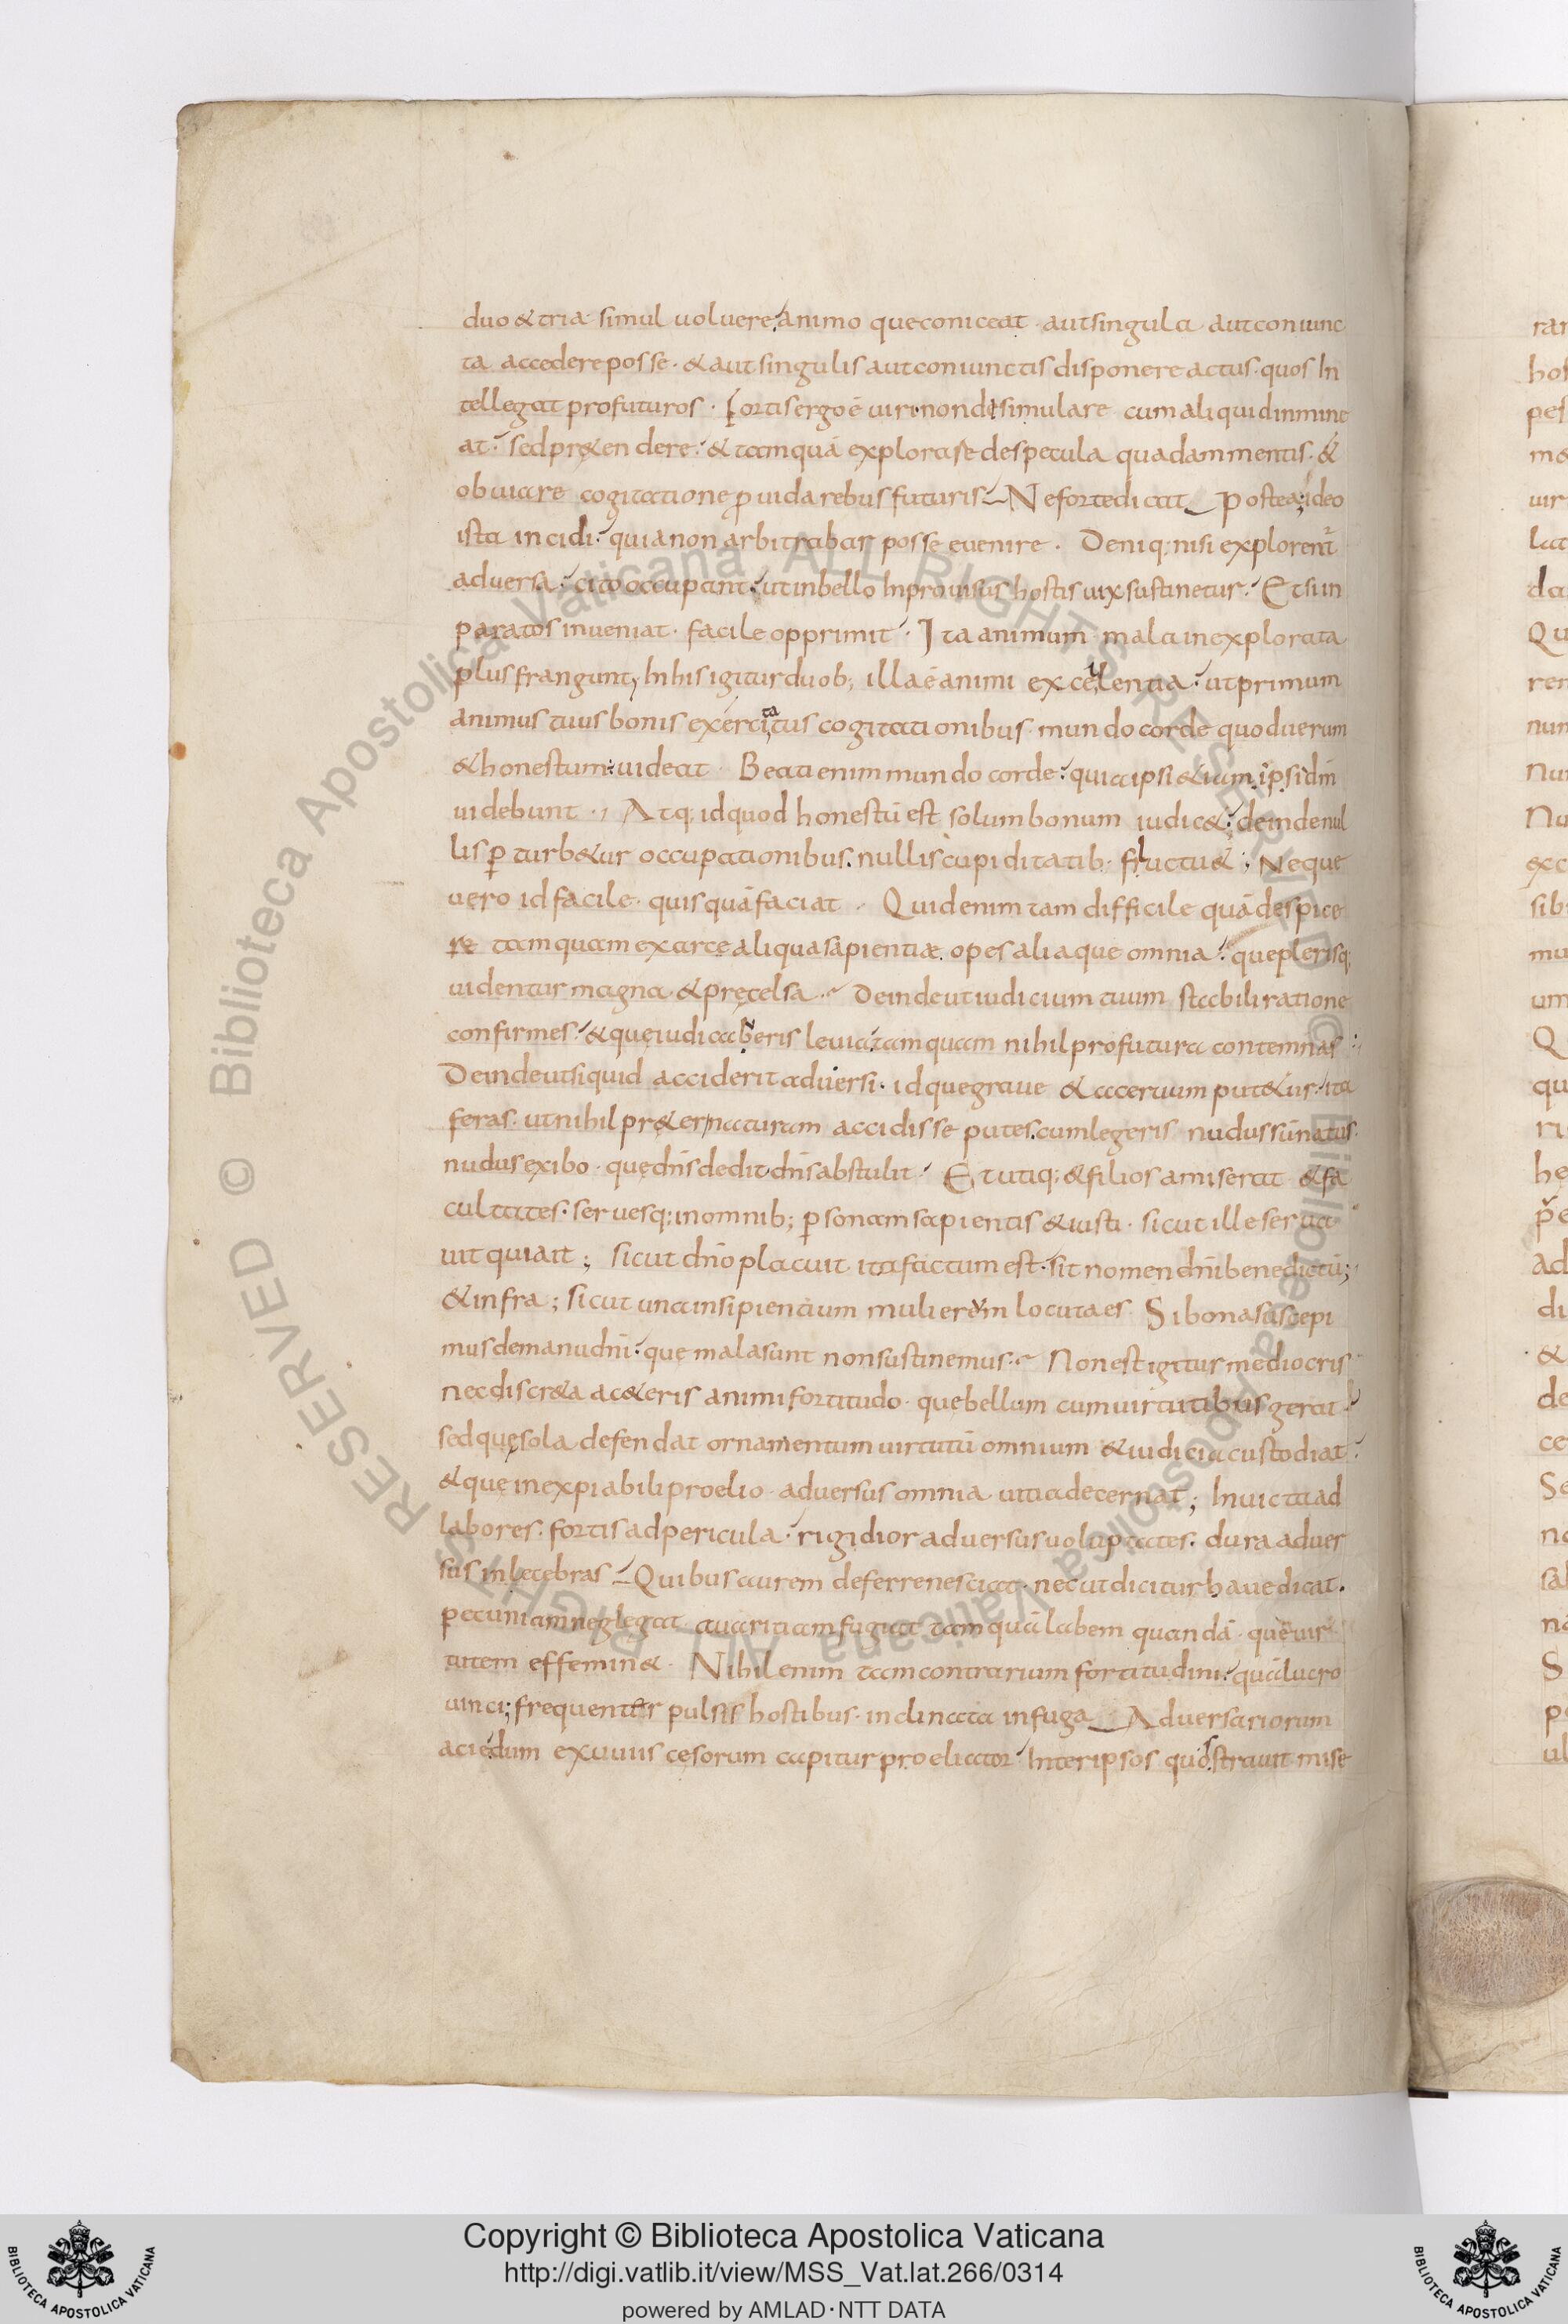 duo & tria simul uoluere animo que coniceat · aut singula aut coniunc
ta accedere posse · & aut singulis aut coniunctis disponere actus · quos In
tellegat profuturos · Fortis ergo ē uiri non desimulare cum aliquid immine
at · sed pr&endere · & tamquā explorase de specula quadam mentis · &
obuiare cogitatione ꝓuida rebus futuris · Ne forte dicat Postea ideo
ista incidi · quia non arbitrabar posse euenire · Deniq; nisi explorent̄
aduersa · cito occupant · ut in bello Inprouisus hostis uix sustinetur · Et si in
paratos inueniat · facile opprimit · Ita animum mala inexplorata
plus frangunt; In his igitur duob; illa ē animi excellentia · ut primum
animus tuus bonis exercitatus cogitationibus mundo corde quod uerum
& honestum uideat · Beati enim mundo corde · quia ipsi &iam ipsi dm̄
uidebunt · Atq; id quod honestū est solum bonum iudic& · deinde nul
lis ꝑturb&ur occupationibus · nullis cupiditatib· fluctu& ; Neque
uero id facile · quisquā faciat · Quid enim tam difficile quā despice
re tamquam ex arce aliqua sapientiæ opes aliaque omnia · que plerisq;
uidentur magna · & pręcelsa · Deinde ut iudicium tuum stabili ratione
confirmes · & quę iudicaueris leuia tamquam nihil profutura contemnas ·
Deinde ut siquid acciderit aduersi · idque graue & aceruum put&ur · ita
feras · ut nihil pr&er naturam accidisse putes · cum legeris nudus sū natus
nudus exibo · quę dn̄s dedit dn̄s abstulit · Et utiq; & filios amiserat & fa
cultates · seruesq; in omnib; ꝑsonam sapientis & iusti · sicut ille serua
uit qui ait ; sicut dn̄o placuit ita factum est · sit nomen dn̄i benedictū;
& infra ; sicut una insipientium mulierum locuta es Si bona suscepi
mus de manu dn̄i · quę mala sunt non sustinemus · Non est igitur mediocris
nec discr&a a c&eris animi fortitudo · que bellum cum uirtutibus gerat ·
sed quę sola defendat ornamentum uirtutū omnium & iudicia custodiat ·
& quę inexpiabili proelio · aduersus omnia uitia decernat ; Inuicta ad
labores · fortis ad pericula · rigidior aduersus uoluptates · dura aduer
sus inlecebras · Quibus aurem deferre nesciat · nec ut dicitur haue dicat ·
pecuniam neglegat auaritiam fugiat tamquā labem quandā · quę uir
tutem effemin& · Nihil enim tam contrarium fortitudini · quā lucro
uinci; frequenter pulsis hostibus · inclinata in fuga Aduersariorum
acie dum exuuiis cesorum capitur proeliator · Inter ipsos quos strauit mise
Copyright © Biblioteca Apostolica Vaticana
http://digi.vatlib.it/view/MSS_Vat.lat.266/0314
powered by AMLAD·NTT DATA